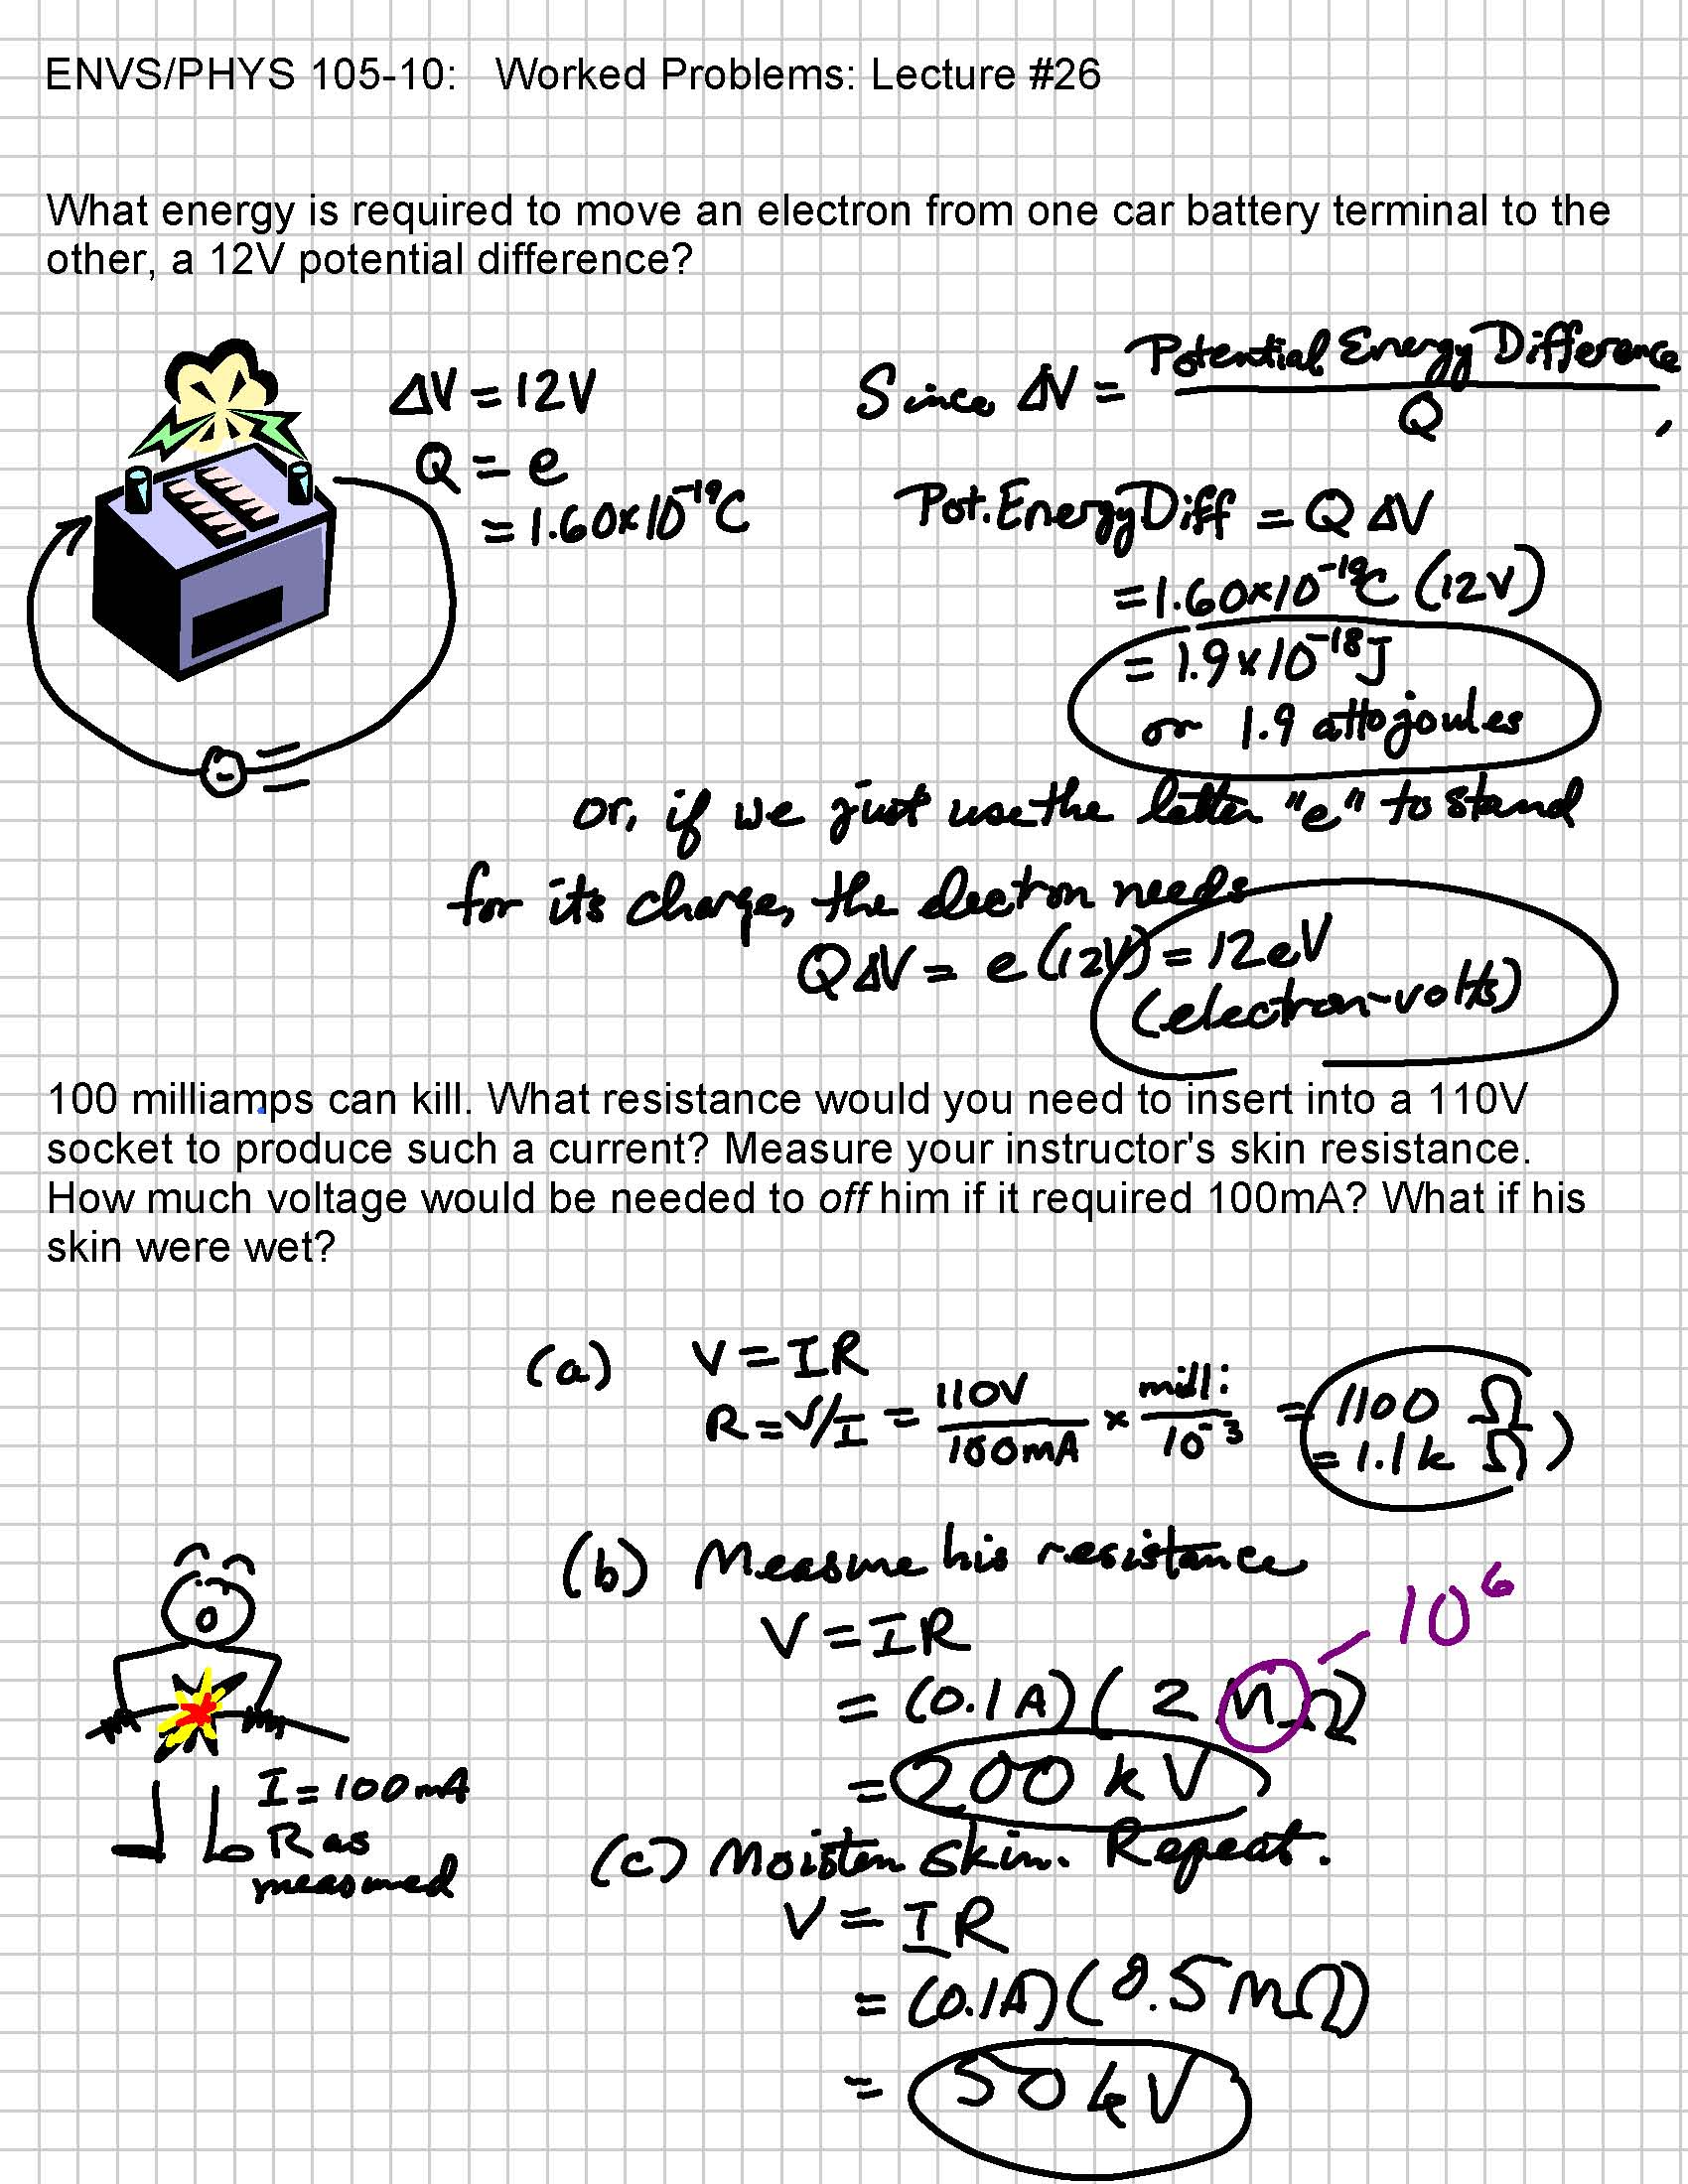 ENVS/PHYS 105-10: Worked Problems: Lecture #26
What energy is required to move an electron from one car battery terminal to the
other, a 12V potential difference?
ΔV = 12V
Q = e
= 1.60×10⁻¹⁹C
Since ΔV = Potential Energy Difference / Q,
Pot. Energy Diff = Q ΔV
= 1.60×10⁻¹⁹C (12V)
= 1.9×10⁻¹⁸J
or 1.9 attojoules
or, if we just use the letter "e" to stand
for its charge, the electron needs
QΔV = e(12V) = 12eV
(electron-volts)
100 milliamps can kill. What resistance would you need to insert into a 110V
socket to produce such a current? Measure your instructor's skin resistance.
How much voltage would be needed to off him if it required 100mA? What if his
skin were wet?
(a) V = IR
R = V/I = 110V / 100mA × milli / 10⁻³ = 1100 Ω
= 1.1k Ω)
(b) Measure his resistance
V = IR
10⁶
= (0.1A)(2 MΩ)
= 200 kV
I = 100mA
R as
measured
(c) Moisten skin. Repeat.
V = IR
= (0.1A)(0.5MΩ)
= 50kV